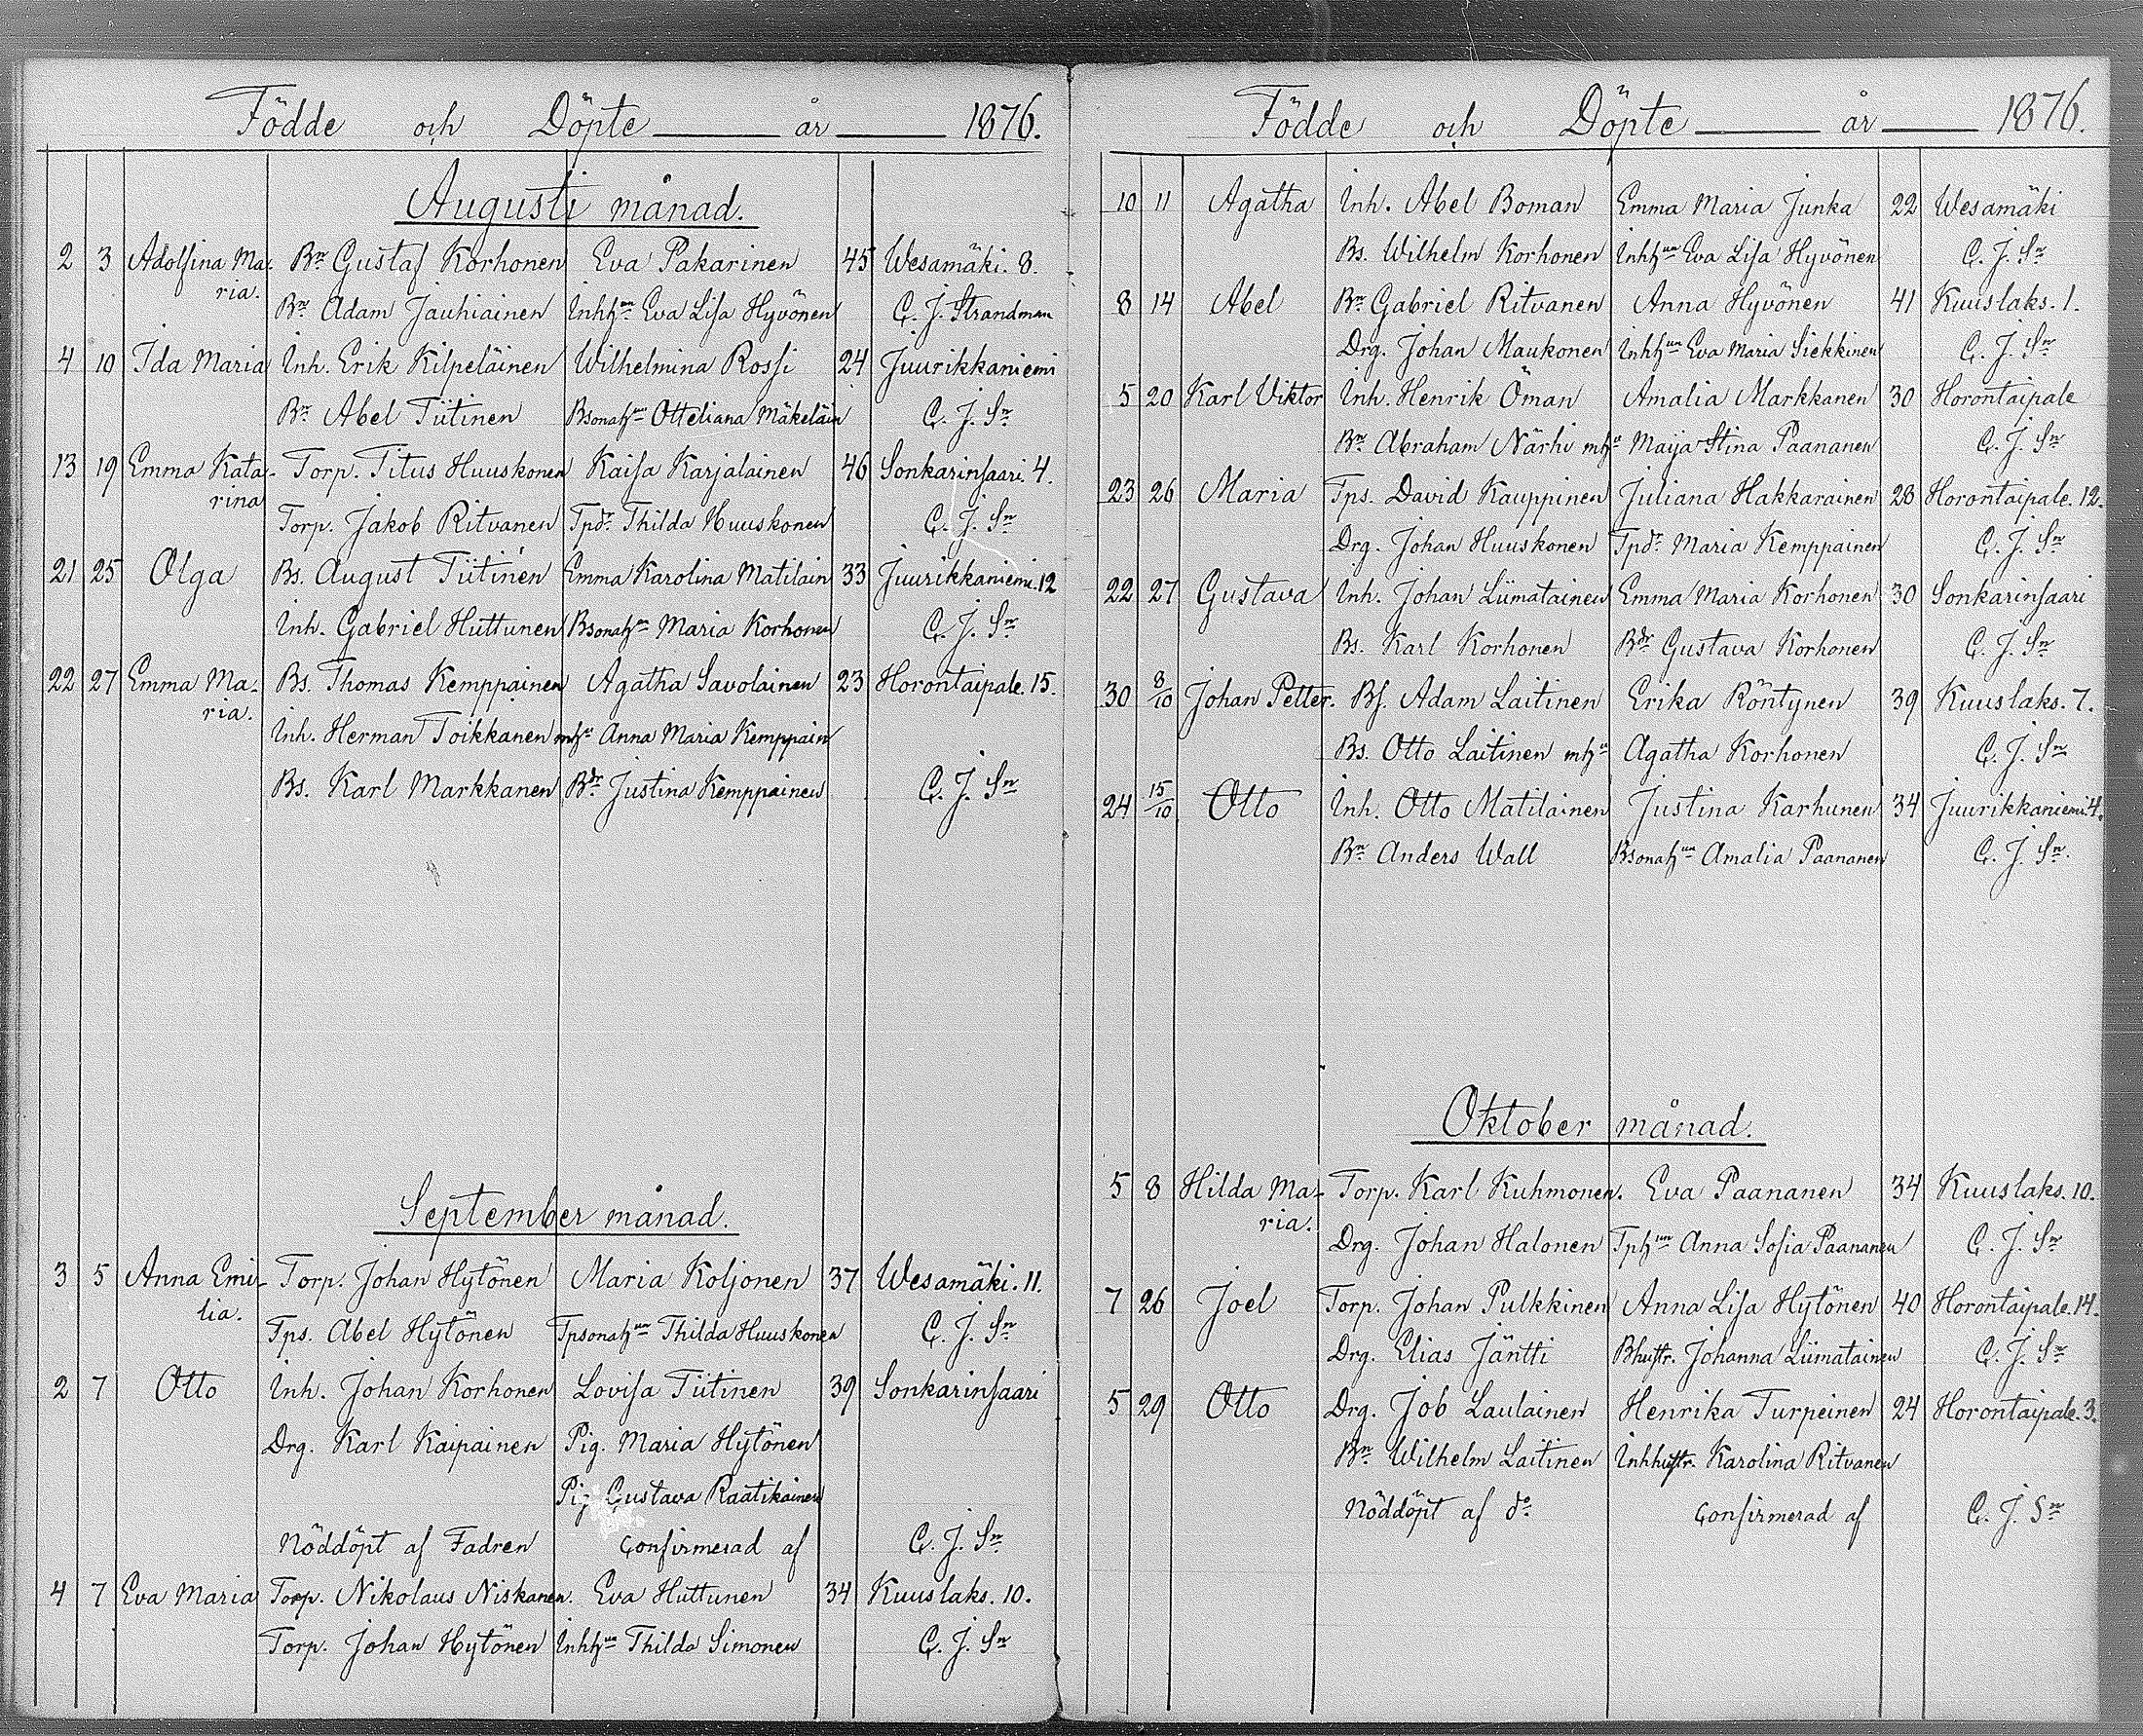 Födde och Döpte år 1876.
Augusti månad.
2 3 Adolfina Ma- Bn Gustaf Korhonen Eva Pakarinen 45 Wesamäki. 8.
ria.
Bn Adam Jauhiainen Inhhun Eva Lisa Hyvönen C. J. Strandman
4 10 Ida Maria Inh. Erik Kilpeläinen Wilhelmina Rossi 24 Juurikkaniemi
Bn Abel Tiitinen Bsonahun Otteliana Mäkeläin C. J. Sn
13 19 Emma Kata- Torp. Titus Huuskonen Kaisa Karjalainen 46 Sonkarinsaari. 4.
rina
Torp. Jakob Ritvanen Tpdr Thilda Huuskonen C. J. Sn
21 25 Olga Bs. August Tiitinen Emma Karolina Matilain 33 Juurikkaniemi. 12
Inh. Gabriel Huttunen Bsonahun Maria Korhonen C. J. Sn
22 27 Emma Ma- Bs. Thomas Kemppainen Agatha Savolainen 23 Horontaipale. 15.
ria.
Inh. Herman Toikkanen mhu Anna Maria Kemppain
Bs. Karl Markkanen Bdr Justina Kemppainen C. J. Sn
September månad.
3 5 Anna Emi- Torp. Johan Hytönen Maria Koljonen 37 Wesamäki. 11.
lia.
Tps. Abel Hytönen Tpsonahun Thilda Huuskonen C. J. Sn
2 7 Otto Inh. Johan Korhonen Lovisa Tiitinen 39 Sonkarinsaari
Drg. Karl Kaipainen Pig. Maria Hytönen
Pig Gustava Raatikainen
Nöddöpt af Fadren Confirmerad af C. J. Sn
4 7 Eva Maria Torp. Nikolaus Niskanen. Eva Huttunen 34 Kuuslaks. 10.
Torp. Johan Hytönen Inhhun Thilda Simonen C. J. Sn
Födde och Döpte år 1876.
10 11 Agatha Inh. Abel Boman Emma Maria Junka 22 Wesamäki
Bs. Wilhelm Korhonen Inhhun Eva Lisa Hyvönen C. J. Sn
8 14 Abel Bn Gabriel Ritvanen Anna Hyvönen 41 Kuuslaks. 1.
Drg. Johan Maukonen Inhhun Eva Maria Siekkinen C. J. Sn
5 20 Karl Viktor Inh. Henrik Öman Amalia Markkanen 30 Horontaipale
Bn Abraham Närhi mhu Maija Stina Paananen C. J. Sn
23 26 Maria Tps. David Kauppinen Juliana Hakkarainen 28 Horontaipale. 12.
Drg. Johan Huuskonen Tpdr Maria Kemppainen C. J. Sn
22 27 Gustava Inh. Johan Liimatainen Emma Maria Korhonen 30 Sonkarinsaari
Bs. Karl Korhonen Bdr Gustava Korhonen C. J. Sn
30 8/10 Johan Petter. Bs. Adam Laitinen Erika Röntynen 39 Kuuslaks. 7.
Bs. Otto Laitinen mhu Agatha Korhonen C. J. Sn
24 15/10 Otto Inh. Otto Matilainen Justina Karhunen 34 Juurikkaniemi. 4.
Bn Anders Wall Bsonahun Amalia Paananen C. J. Sn.
Oktober månad.
5 8 Hilda Ma- Torp. Karl Kuhmonen. Eva Paananen 34 Kuuslaks. 10.
ria.
Drg. Johan Halonen Tphun Anna Sofia Paananen C. J. Sn
7 26 Joel Torp. Johan Pulkkinen Anna Lisa Hytönen 40 Horontaipale. 14.
Drg. Elias Jäntti Bhustr. Johanna Liimatainen C. J. Sn
5 29 Otto Drg. Job Laulainen Henrika Turpeinen 24 Horontaipale. 3.
Bn Wilhelm Laitinen Inhhustr. Karolina Ritvanen
Nöddöpt af do Confirmerad af C. J. Sn